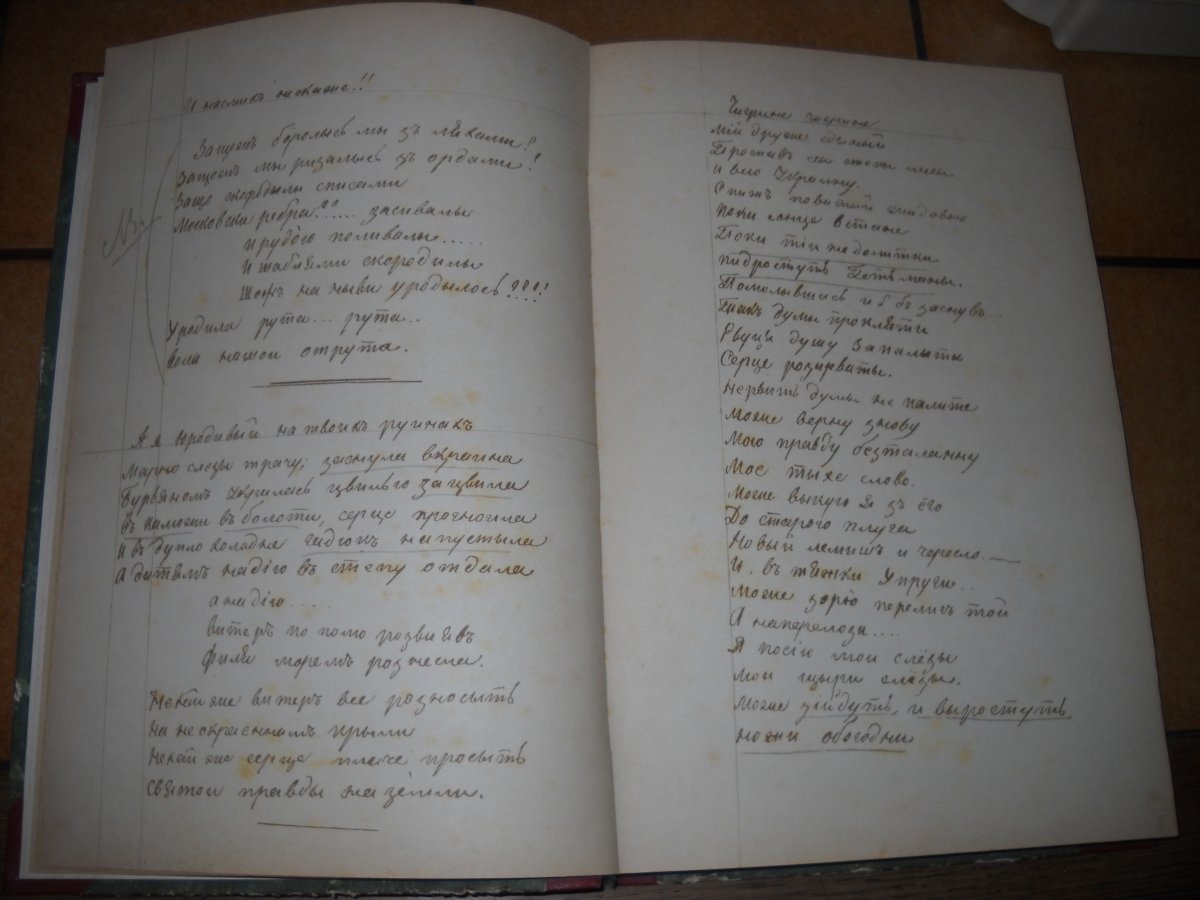 И наслихъ нескаже!!
Защомъ боролысь мы зъ ляхами?
Защомъ мы ризалысь зъ ордами!
Защо скородылы списами
Московски ребра?? ..... засивалы
и рудою поливалы.....
И шаблями скородилы
Щожъ на ныви уродылось????!
Уродила рута... рута..
воли нашои отрута.
А я юродивый на твоихъ руинахъ
Марно слезы трачу; заснула вкраина
Бурьяномъ укрылась цвилью зацвила
въ калюжи въ болоти, серце прогноила
И въ дупло холодне гадюкъ напустыла
А дитямъ надiю въ степу оддала
а надiю....
витеръ по полю розвиявъ
Филя моремъ рознесла.
Нехай же витеръ все розносыть
На неокраенимъ крыли
Нехай же серце плаче просыть
святои правды на земли.
Чигрине чигрине
мiй друже единый
Проспавъ еси степи лиси
и всю Украину.
Спижъ повитый жидовою
поки сонце встане
Поки тiи недолитки
пидростуть Гетьманы.
Помолывшись и я бъ заснувъ...
Такъ думы прокляти
Рвуця душу запалыты
Серце розирваты.
Нервить думы не палите
Може верну знову
Мою правду безталанну
Мое тыхе слово.
Може выкую я зъ его
До старого плуга
Новый лемишъ и чересло.—
И въ тяжки упруги...
Може зорю перелигъ той
А наперелози....
Я посiю мои слёзы
Мои щыри слёзы.
Може зiйдуть, и выростуть
ножи обоюдни